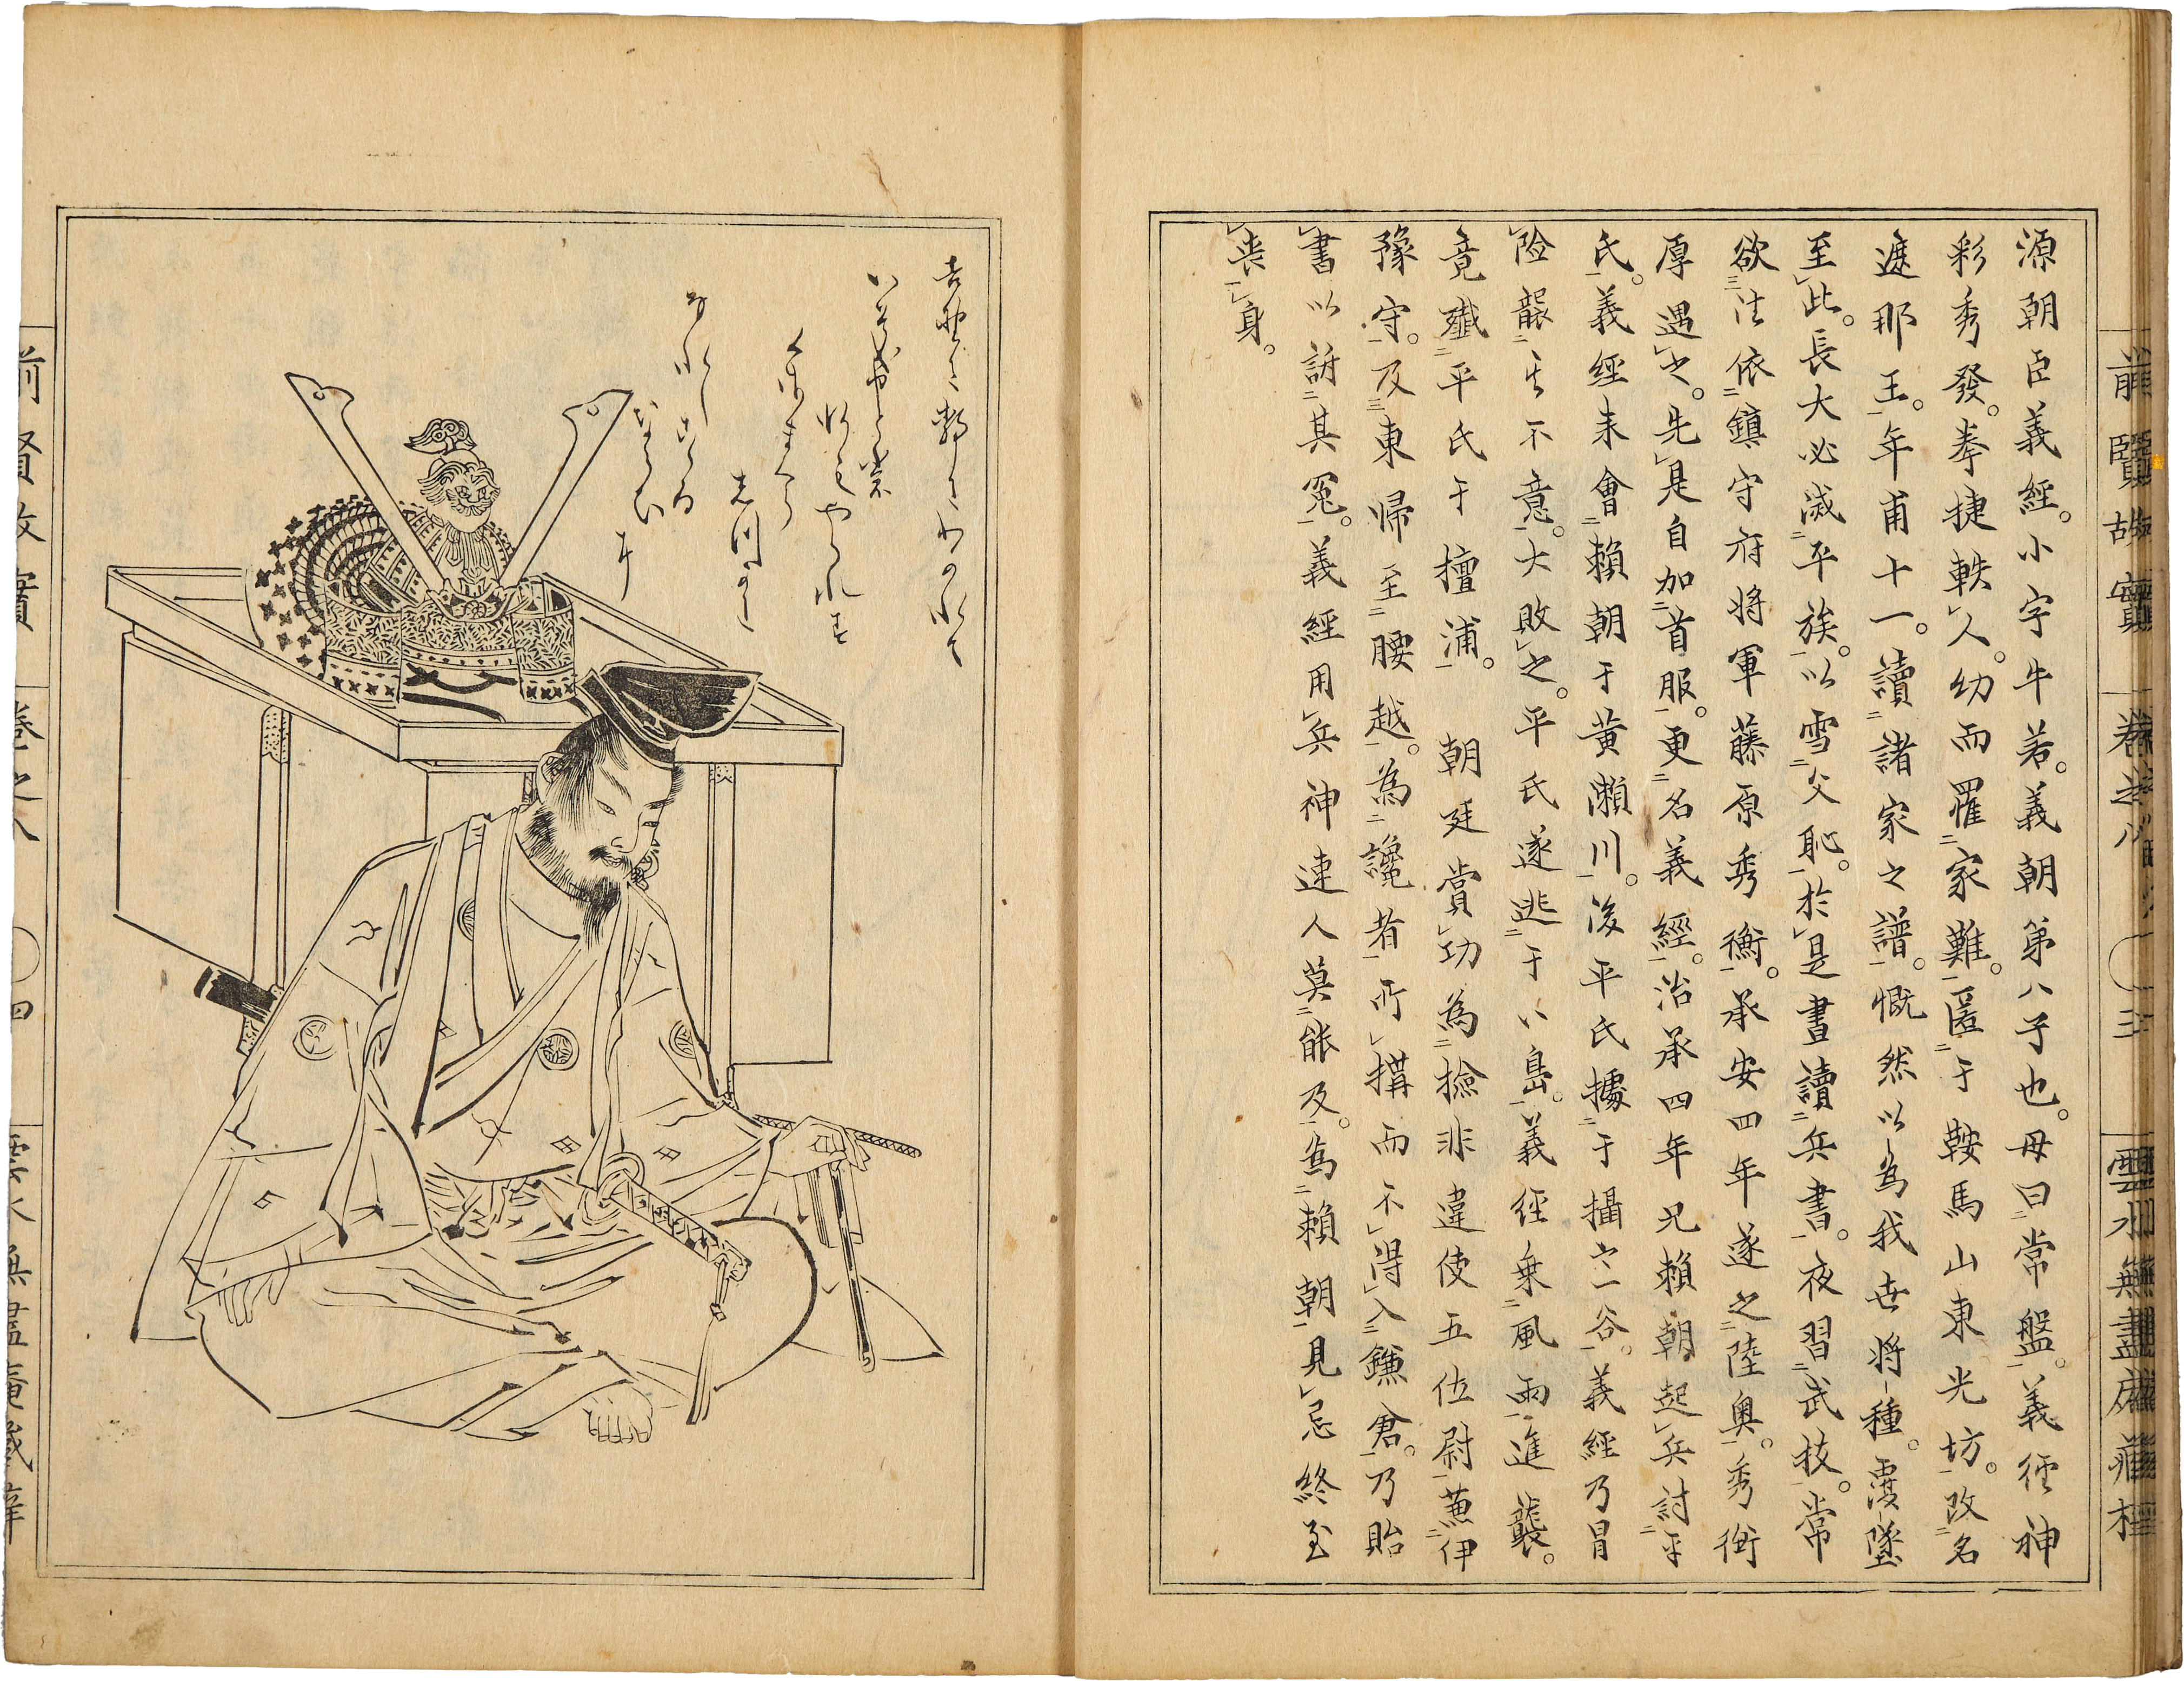 前賢故實
卷之八
三
雲水無盡庵藏梓
源朝臣義經。小字牛若。義朝第八子也。母曰常盤。義經神
彩秀發。拳捷軼人。幼而罹家難。匿于鞍馬山東光坊。改名
遮那王。年甫十一。讀諸家之譜。慨然以為我世將種。覆墜
至此。長大必滅平族。以雪父恥。於是晝讀兵書。夜習武技。常
欲往依鎮守府將軍藤原秀衡。承安四年遂之陸奧。秀衡
厚遇之。先是自加首服。更名義經。治承四年兄賴朝起兵討平
氏。義經來會賴朝于黃瀨川。後平氏據于攝之一谷。義經乃冒
險襲其不意。大敗之。平氏遂逃于八島。義經乘風雨進襲。
竟殲平氏于檀浦。 朝廷賞功為檢非違使五位尉兼伊
豫守。及東歸至腰越。為讒者所搆而不得入鎌倉。乃貽
書以訴其冤。義經用兵神速人莫能及。為賴朝見忌終至
喪身。
前賢故實
卷之八
四
雲水無盡庵藏梓